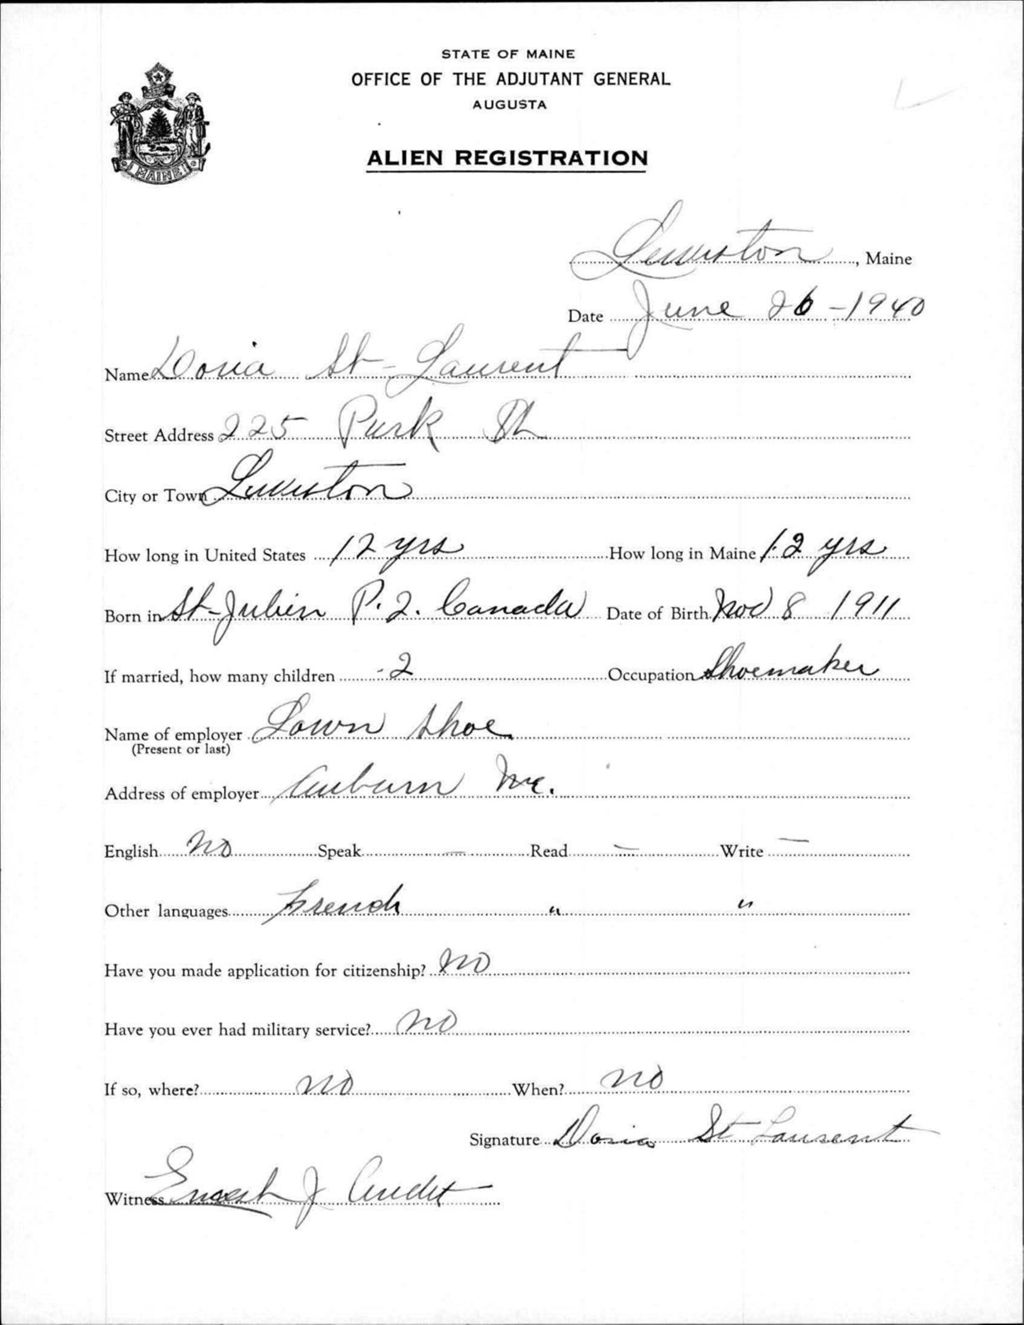 STATE OF MAINE
OFFICE OF THE ADJUTANT GENERAL
AUGUSTA
ALIEN REGISTRATION
MAINE
Lewiston, Maine
Date June 26-1940
Name Doria St-Laurent
Street Address 225 Park St
City or Town Lewiston
How long in United States 12 yrs How long in Maine 12 yrs
Born in St-Julien P.Q. Canada Date of Birth Nov 8 1911
If married, how many children -2 Occupation Shoemaker
Name of employer Lown Shoe
(Present or last)
Address of employer Auburn Me.
English No Speak — Read — Write —
Other languages French " "
Have you made application for citizenship? No
Have you ever had military service? No
If so, where? No When? No
Signature Doria St Laurent
Witness Ernest J Audet